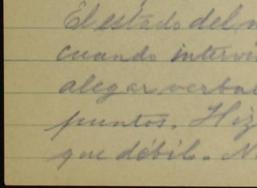 El estado del
cuando intervi
alegar verbal
puntos. Hiz
que débil. N